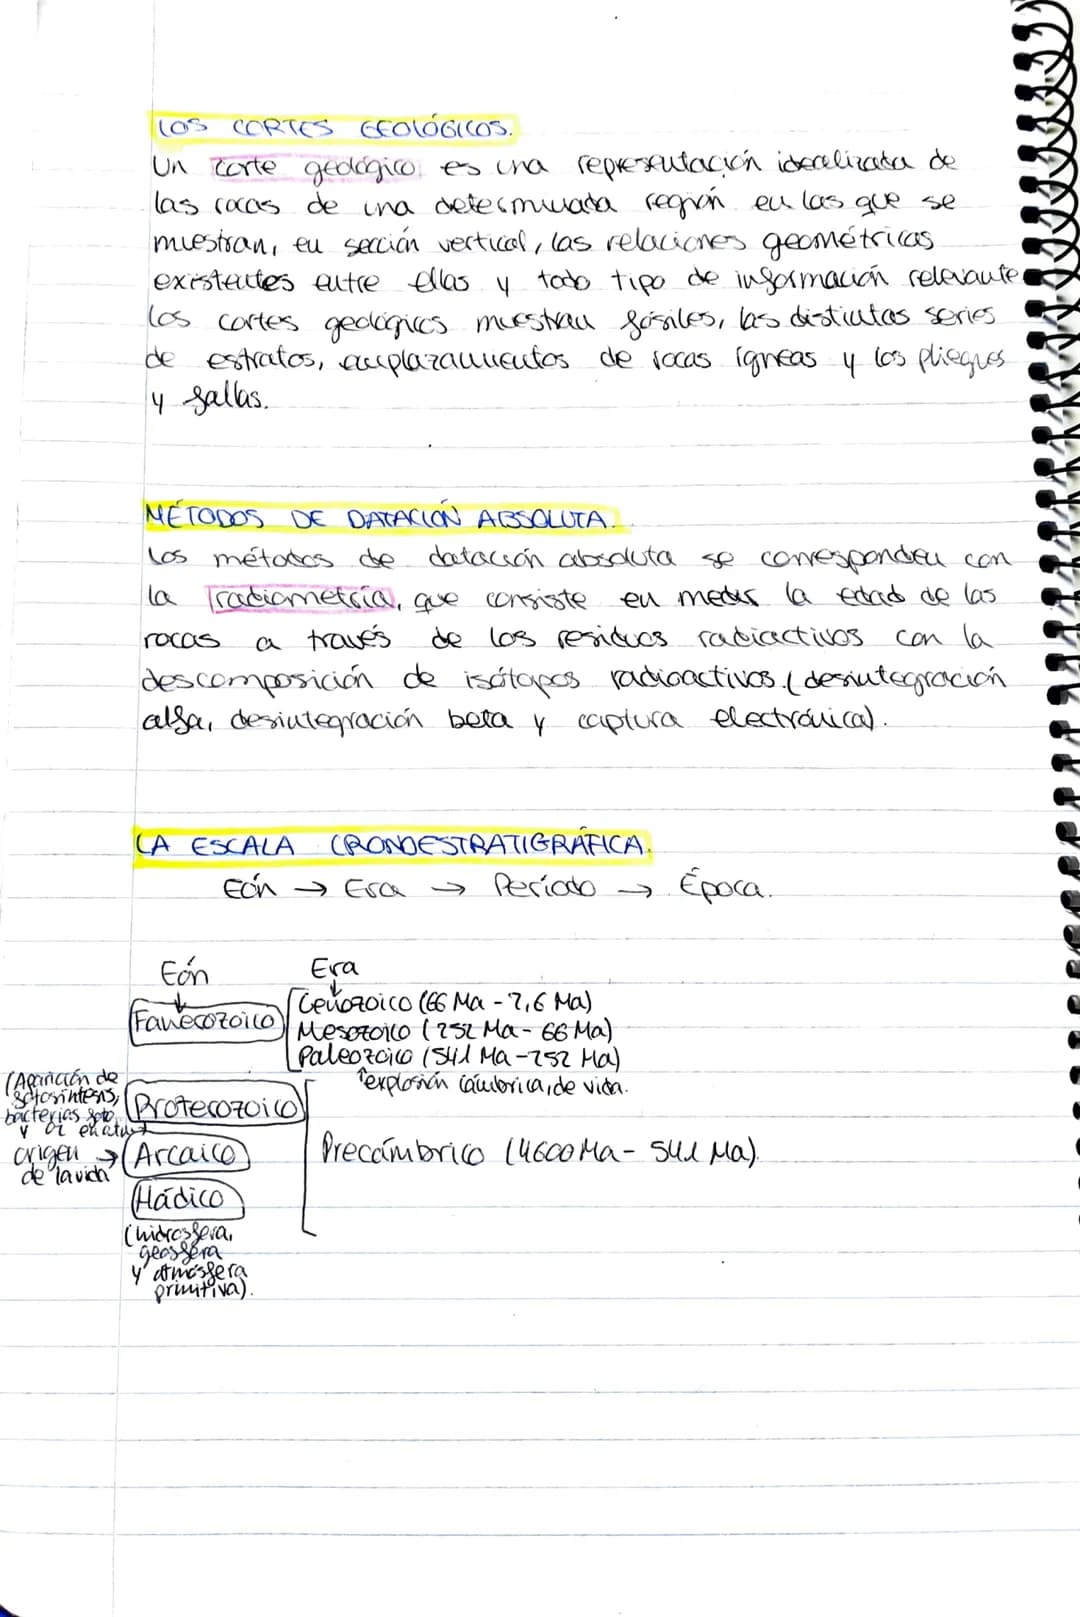 LOS CORTES GEOLÓGICOS.
Un corte geológico es una representación idealizada de
las rocas de una determinada región en las que se
muestran, en sección vertical, las relaciones geométricas
existentes entre ellas y todo tipo de información relevante
Los cortes geológicos muestran fósiles, las distintas series
de estratos, emplazamientos de rocas ígneas y los pliegues
y fallas.
MÉTODOS DE DATACIÓN ABSOLUTA.
Los métodos de datación absoluta se corresponden con
la radiometría, que consiste en medir la edad de las
rocas a través de los residuos radiactivos con la
descomposición de isótopos radioactivos (desintegración
alfa, desintegración beta y captura electrónica).
LA ESCALA CRONOESTRATIGRÁFICA.
Eón → Era → Período → Época.
Eón Era
Fanerozoico
Cenozoico (66 Ma - 2,6 Ma)
Mesozoico (252 Ma - 66 Ma)
Paleozoico (541 Ma - 252 Ma)
explosión cámbrica, de vida.
(Aparición de
fotosíntesis,
bacterias foto
y O2
Proterozoico
origen → Arcaico
de la vida
Precámbrico (4600 Ma - 541 Ma).
Hádico
(hidrosfera,
geosfera
y atmósfera
primitiva).